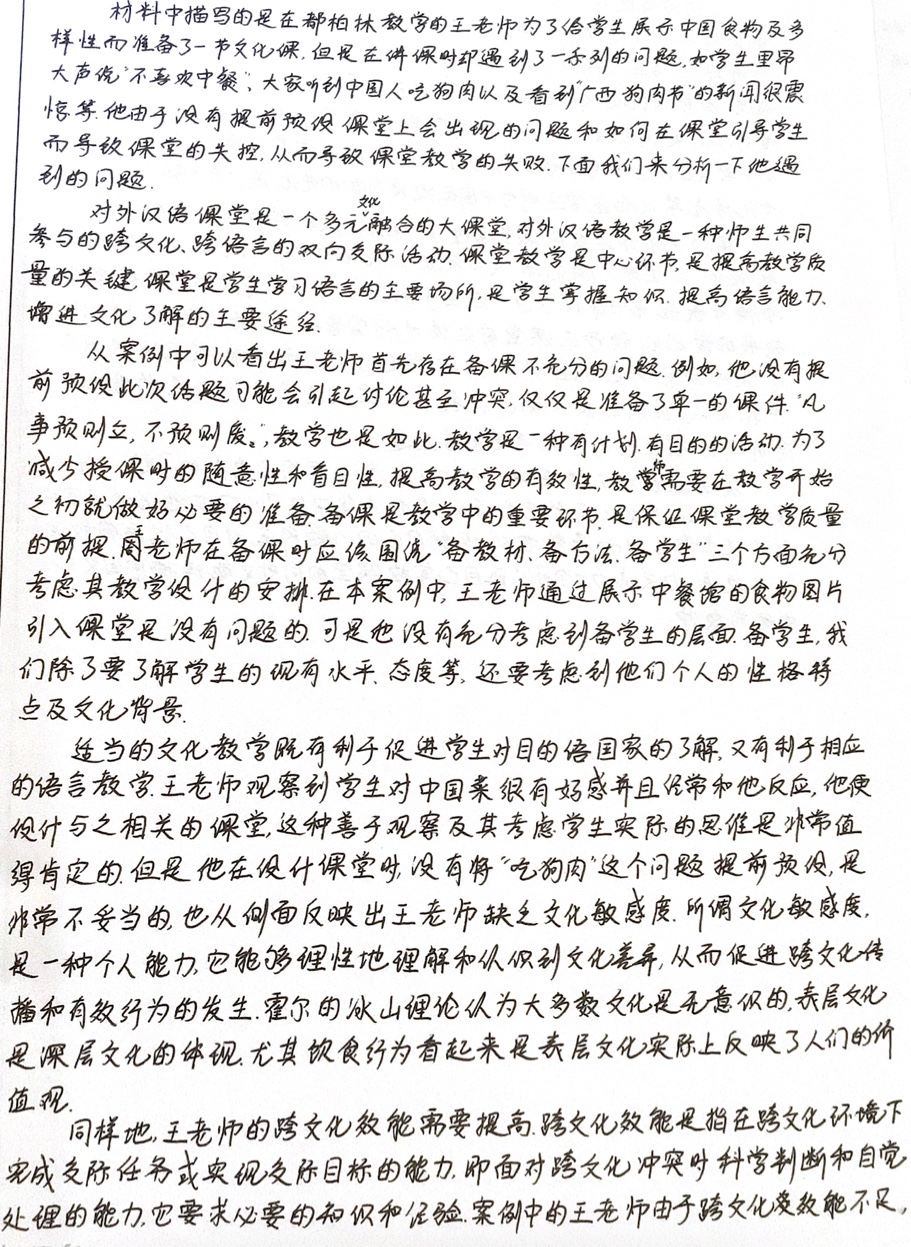 材料中描写的是在都柏林教学的王老师为了给学生展示中国食物及多
样性而准备了一节文化课,但是在讲课时却遇到了一系列的问题,如学生里昂
大声说“不喜欢中餐”,大家听到中国人吃狗肉以及看到“广西狗肉节”的新闻很震
惊等.他由于没有提前预设课堂上会出现的问题和如何在课堂引导学生
而导致课堂的失控,从而导致课堂教学的失败.下面我们来分析一下他遇
到的问题.
对外汉语课堂是一个多元文化融合的大课堂,对外汉语教学是一种师生共同
参与的跨文化、跨语言的双向交际活动.课堂教学是中心环节,是提高教学质
量的关键.课堂是学生学习语言的主要场所,是学生掌握知识.提高语言能力、
增进文化了解的主要途径.
从案例中可以看出王老师首先存在备课不充分的问题.例如,他没有提
前预设此次话题可能会引起讨论甚至冲突,仅仅是准备了单一的课件.“凡
事预则立,不预则废。”,教学也是如此.教学是一种有计划.有目的的活动.为了
减少授课时的随意性和盲目性,提高教学的有效性,教师需要在教学开始
之初就做好必要的准备.备课是教学中的重要环节,是保证课堂教学质量
的前提.王老师在备课时应该围绕“备教材、备方法、备学生”三个方面充分
考虑其教学设计的安排.在本案例中,王老师通过展示中餐馆的食物图片
引入课堂是没有问题的.可是他没有充分考虑到备学生的层面.备学生,我
们除了要了解学生的现有水平、态度等,还要考虑到他们个人的性格特
点及文化背景.
适当的文化教学既有利于促进学生对目的语国家的了解,又有利于相应
的语言教学.王老师观察到学生对中国菜很有好感并且经常和他反应,他便
设计与之相关的课堂,这种善于观察及其考虑学生实际的思维是非常值
得肯定的.但是他在设计课堂时,没有将“吃狗肉”这个问题提前预设,是
非常不妥当的,也从侧面反映出王老师缺乏文化敏感度.所谓文化敏感度,
是一种个人能力,它能够理性地理解和认识到文化差异,从而促进跨文化传
播和有效行为的发生.霍尔的冰山理论认为大多数文化是无意识的,表层文化
是深层文化的体现.尤其饮食行为看起来是表层文化实际上反映了人们的价
值观.
同样地,王老师的跨文化效能需要提高.跨文化效能是指在跨文化环境下
完成交际任务或实现交际目标的能力,即面对跨文化冲突时科学判断和自觉
处理的能力,它要求必要的知识和经验.案例中的王老师由于跨文化效能不足,